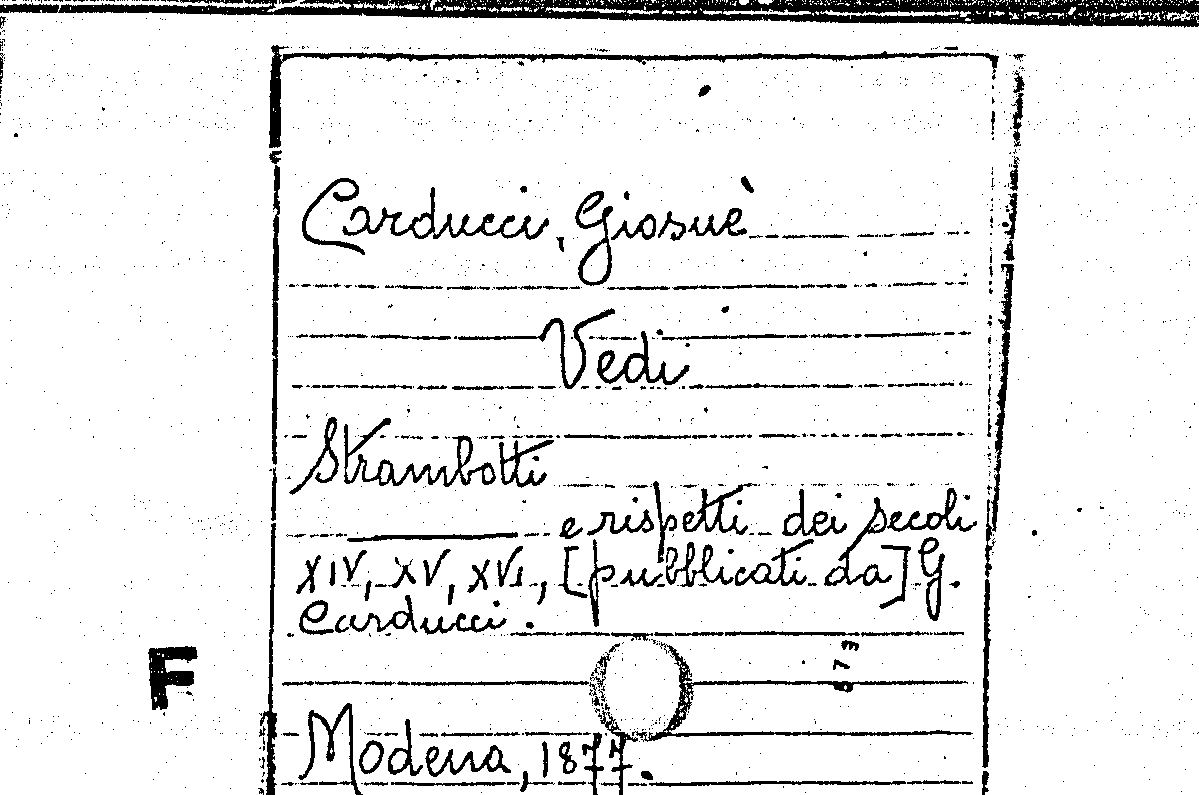 Carducci, Giosuè
Vedi
Strambotti
e rispetti dei secoli
XIV, XV, XVI, [pubblicati da] G.
Carducci.
673
F
Modena, 1877.